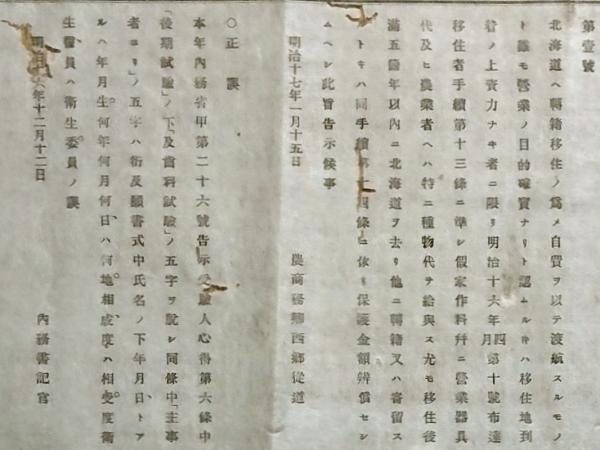 第壹號
北海道ヘ轉籍移住ノ爲メ自費ヲ以テ渡航スルモノ
ト雖モ營業ノ目的確實ナリト認ムルキハ移住地到
着ノ上資力ナキ者ニ限リ明治十六年四月第十號布達
移住者手續第十三條ニ準シ假家作料幷ニ營業器具
代及ヒ農業者ヘハ特ニ種物代ヲ給與ス尤モ移住後
滿五箇年以內ニ北海道ヲ去リ他ニ轉籍又ハ寄留ス
トキハ同手續第二四條ニ依リ保護金額辨償セシ
ムヘシ此旨吿示候事
明治十七年一月十五日
農商務卿西鄕從道
○正誤
本年內務省甲第二十六號吿示受驗人心得第六條中
「後期試驗」ノ下「及齒科試驗」ノ五字ヲ脫シ同條中「主事
者ヨリ」ノ五字ハ衍及願書式中氏名ノ下年月日、トア
ルハ年月生何年何月何日、ハ何地相成度ハ相受度衛
生醫員ハ衛生委員ノ誤
年十二月十二日
內務書記官